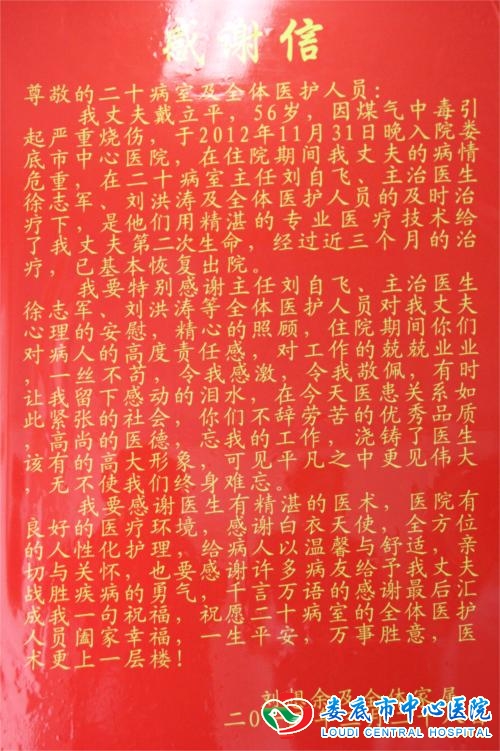 感谢信
尊敬的二十病室及全体医护人员:
我丈夫戴立平,56岁,因煤气中毒引
起严重烧伤,于2012年11月31日晚入院娄
底市中心医院,在住院期间我丈夫的病情
危重,在二十病室主任刘自飞、主治医生
徐志军、刘洪涛及全体医护人员的及时治
疗下,是他们用精湛的专业医疗技术给
了我丈夫第二次生命,经过近三个月的治
疗,已基本恢复出院。
我要特别感谢主任刘自飞、主治医生
徐志军、刘洪涛等全体医护人员对我丈夫
心理的安慰,精心的照顾,住院期间你们
对病人的高度责任感,对工作的兢兢业业
,一丝不苟,令我感激,令我敬佩,有时
让我留下感动的泪水,在今天医患关系如
此紧张的社会,你们不辞劳苦的优秀品质
高尚的医德,忘我的工作,浇铸了医生
该有的高大形象,可见平凡之中更见伟大
无不使我们终身难忘。
我要感谢医生有精湛的医术,医院有
良好的医疗环境,感谢白衣天使,全方位
的人性化护理,给病人以温馨与舒适,亲
切与关怀,也要感谢许多病友给予我丈夫
战胜疾病的勇气,千言万语的感谢最后汇
成一句祝福,祝愿二十病室的全体医护
人员阖家幸福,一生平安,万事胜意,医
术更上一层楼!
及全体家属
娄底市中心医院
LOUDI CENTRAL HOSPITAL